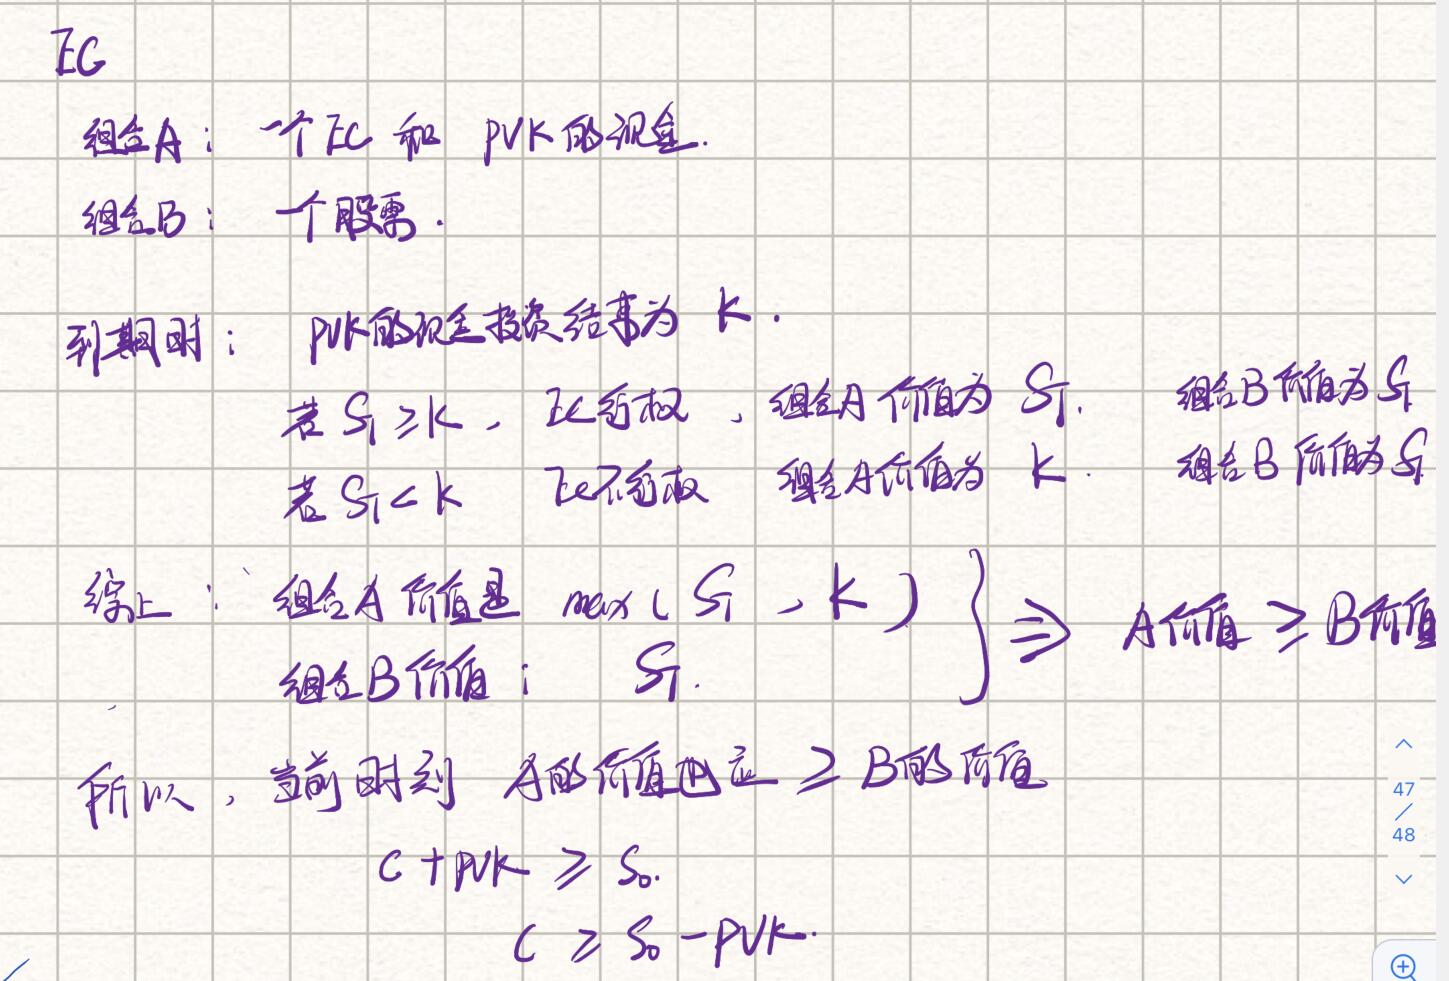 EC
组合A： 一个EC 和 PVK的现金.
组合B： 一个股票.
到期时： PVK的现金投资结果为 K.
若 S_T ≥ K, EC行权, 组合A 价值为 S_T. 组合B价值为 S_T
若 S_T < K EC不行权 组合A价值为 K. 组合B价值为 S_T
综上： 组合A 价值是 max ( S_T , K )
组合B价值： S_T.
} ⇒ A价值 ≥ B价值
所以, 当前时刻 A的价值也应 ≥ B的价值
C + PVK ≥ S_0.
C ≥ S_0 - PVK.
47
/
48